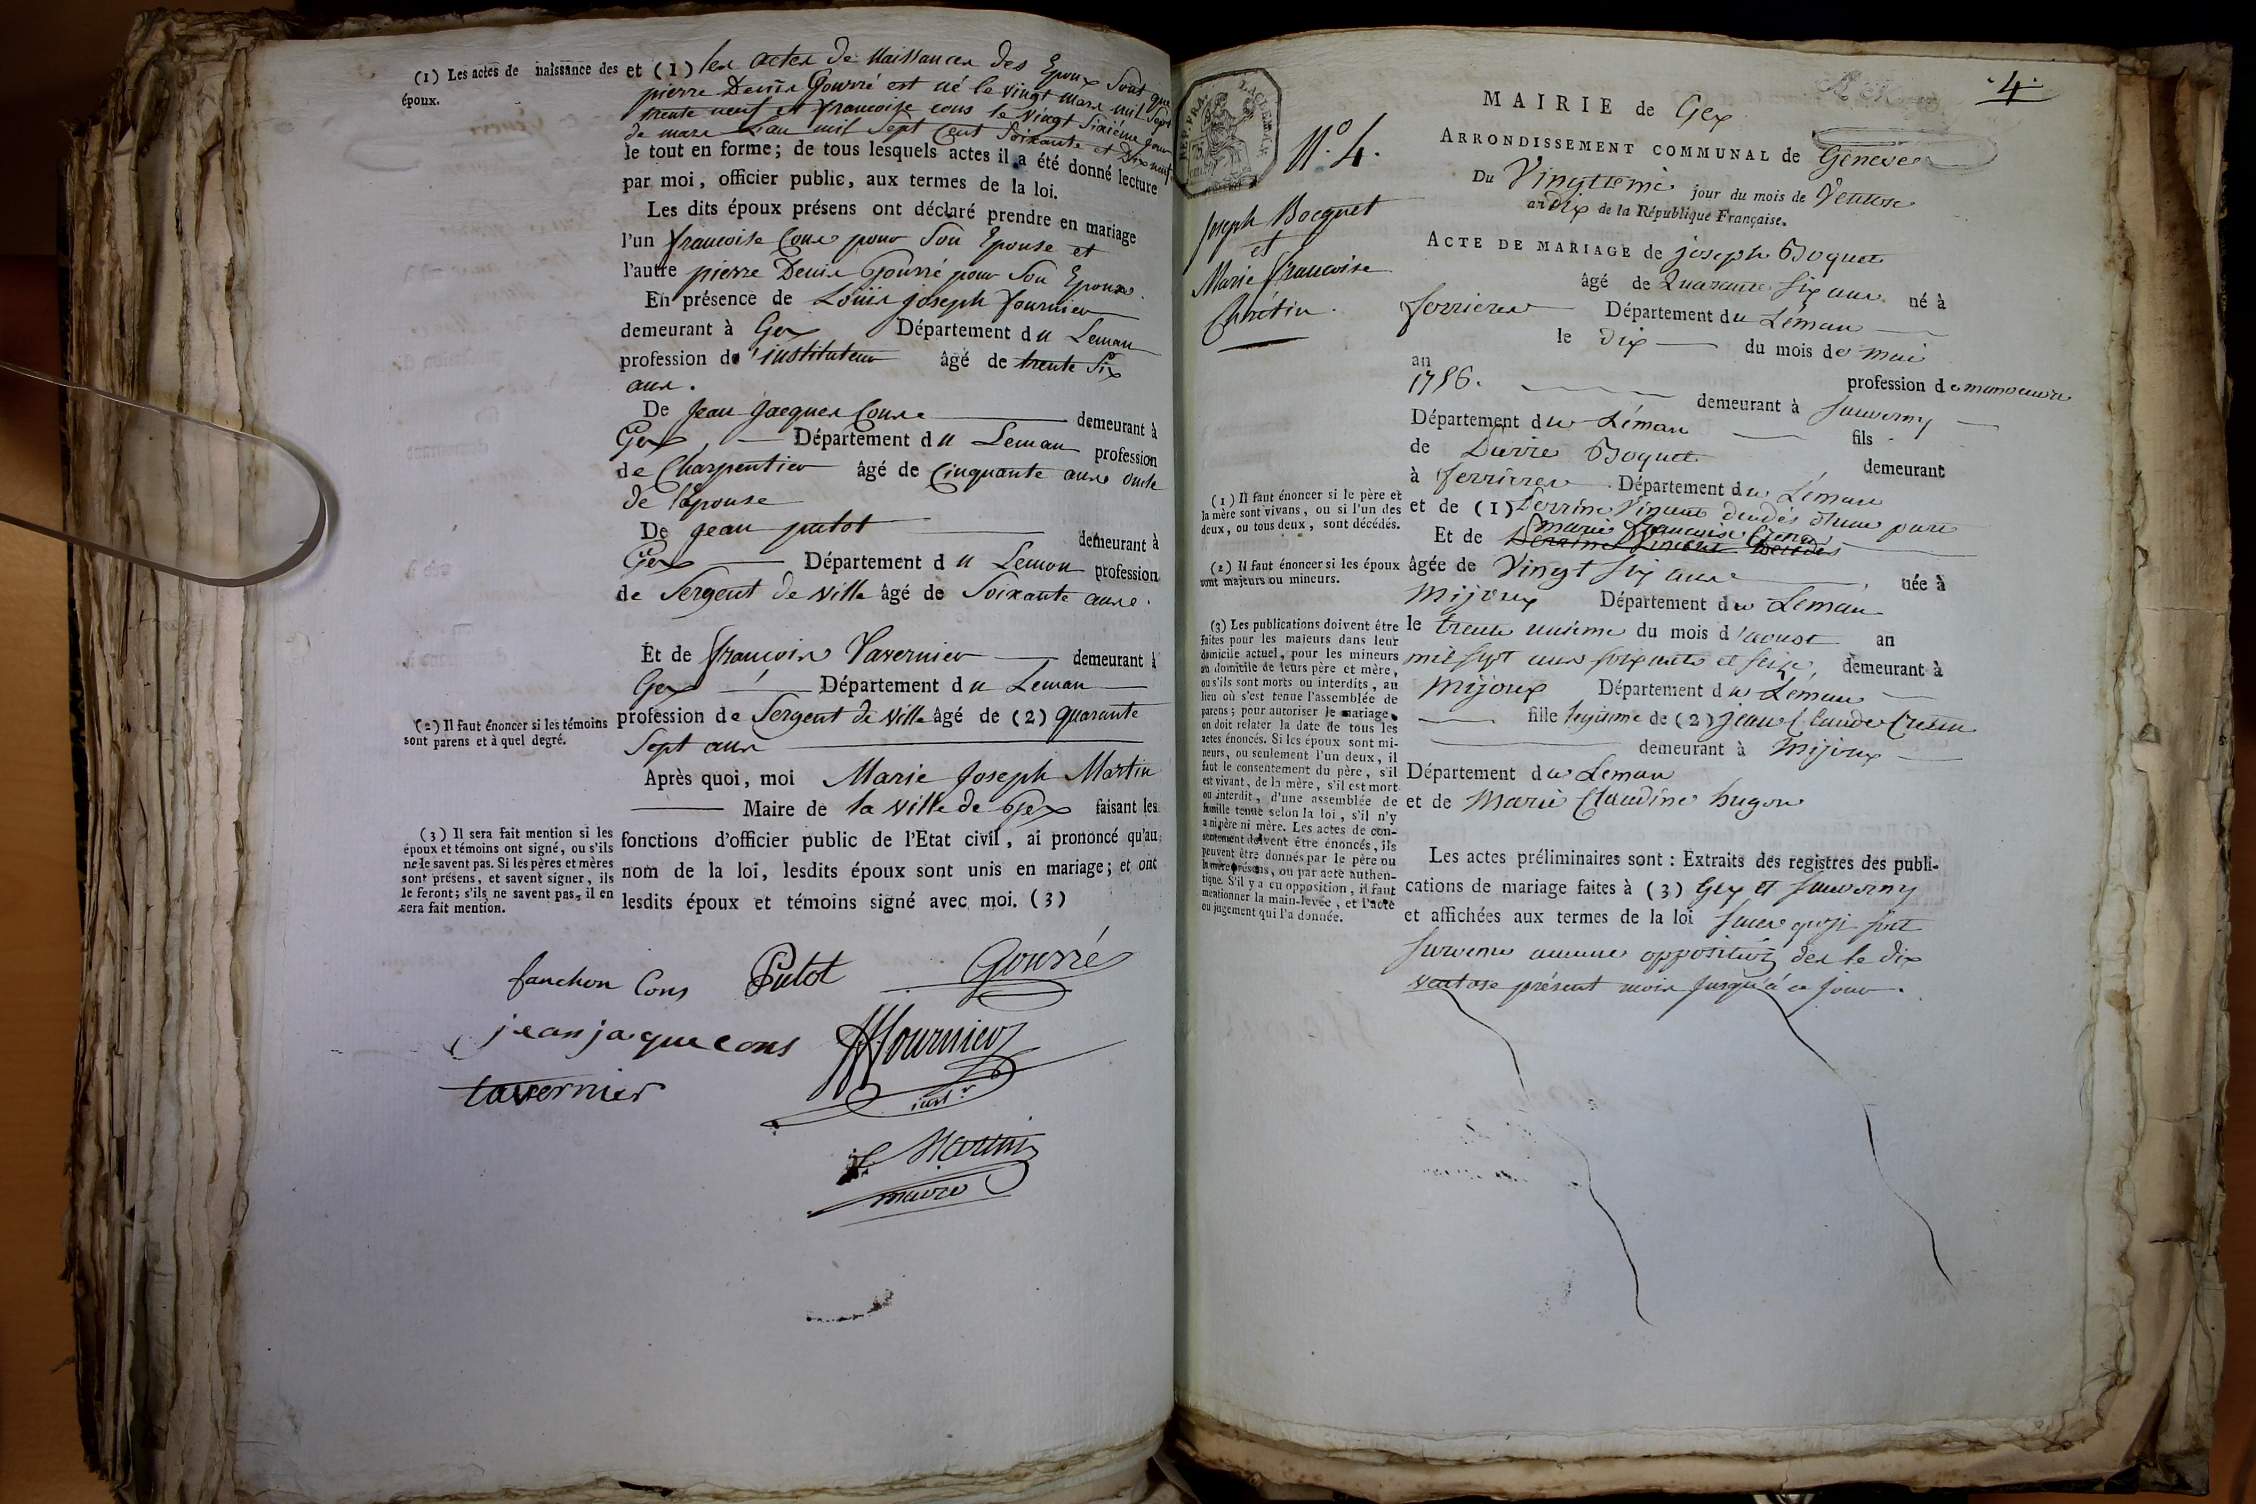 (1) Les actes de naissance des
époux.
et (1) les actes de Naissances des Epoux Sont que
pierre Denis Gourré est né le vingt mars mil Sept
trente neuf et francoise cons le vingt Sixiéme jour
de mars L'an mil Sept Cent Soixante et Dix neuf
le tout en forme; de tous lesquels actes il a été donné lecture
par moi, officier public, aux termes de la loi.
Les dits époux présens ont déclaré prendre en mariage
l'un francoise Cons pour Son Epouse et
l'autre pierre Denis Gourré pour Son Epoux.
En présence de Loüis joseph fournier
demeurant à Gex Département du Leman
profession de instituteur âgé de trente Six
ans.
De Jean Jacques Cons demeurant à
Gex Département du Leman profession
de Charpentier âgé de Cinquante ans oncle
de l'Epouse
De jean putot demeurant à
Gex Département du Leman profession
de Sergent de ville âgé de Soixante ans.
Et de françois Tavernier demeurant à
Gex Département du Leman
(2) Il faut énoncer si les témoins
sont parens et à quel degré.
profession de Sergent de ville âgé de (2) quarante
Sept ans
Après quoi, moi Marie Joseph Martin
Maire de la ville de Gex faisant les
(3) Il sera fait mention si les
époux et témoins ont signé, ou s'ils
ne le savent pas. Si les pères et mères
sont présens, et savent signer, ils
le feront; s'ils ne savent pas, il en
sera fait mention.
fonctions d'officier public de l'Etat civil, ai prononcé qu'au
nom de la loi, lesdits époux sont unis en mariage; et ont
lesdits époux et témoins signé avec moi. (3)
fanchon Cons Putot Gourré
jean jaque cons fournier
inst.r
tavernier
Martin
maire
4
N.o 4.
Joseph Bocquet
et
Marie francoise
Chrétin.
MAIRIE de Gex
ARRONDISSEMENT COMMUNAL de Geneve
Du Vingtieme jour du mois de Ventose
an dix de la République Française.
ACTE DE MARIAGE de joseph Boquet
âgé de Quarante six ans né à
ferrieres Département du Léman
le dix du mois de mai
an
1756. profession de manoeuvre
demeurant à Sauverny
Département du Léman fils
de Pierre Boquet demeurant
à ferrieres Département du Léman
(1) Il faut énoncer si le père et
la mère sont vivans, ou si l'un des
deux, ou tous deux, sont décédés.
et de (1) Perrine Vincent decedés d'une part
marie françoise Cretin
Et de Perrine Vincent decedés
(2) Il faut énoncer si les époux
sont majeurs ou mineurs.
âgée de Vingt six ans née à
Mijoux Département du Léman
(3) Les publications doivent être
faites pour les majeurs dans leur
domicile actuel, pour les mineurs
au domicile de leurs père et mère,
ou s'ils sont morts ou interdits, au
lieu où s'est tenue l'assemblée de
parens; pour autoriser le mariage,
on doit relater la date de tous les
actes énoncés. Si les époux sont mi-
neurs, ou seulement l'un deux, il
faut le consentement du père, s'il
est vivant, de la mère, s'il est mort
ou interdit, d'une assemblée de
famille tenue selon la loi, s'il n'y
a ni père ni mère. Les actes de con-
sentement doivent être énoncés, ils
peuvent être donnés par le père ou
la mère présens, ou par acte authen-
tique. S'il y a eu opposition, il faut
mentionner la main-levée, et l'acte
ou jugement qui l'a donnée.
le trente unieme du mois d'aoust an
mil sept cens soixante et seize demeurant à
Mijoux Département du Léman
fille legitime de (2) jean Claude Cretin
demeurant à Mijoux
Département du Leman
et de Marie Claudine hugon
Les actes préliminaires sont : Extraits des registres des publi-
cations de mariage faites à (3) Gex et Sauverny
et affichées aux termes de la loi sans qu'il soit
survenu aucune opposition des le dix
ventose présent mois jusqu'à ce jour.